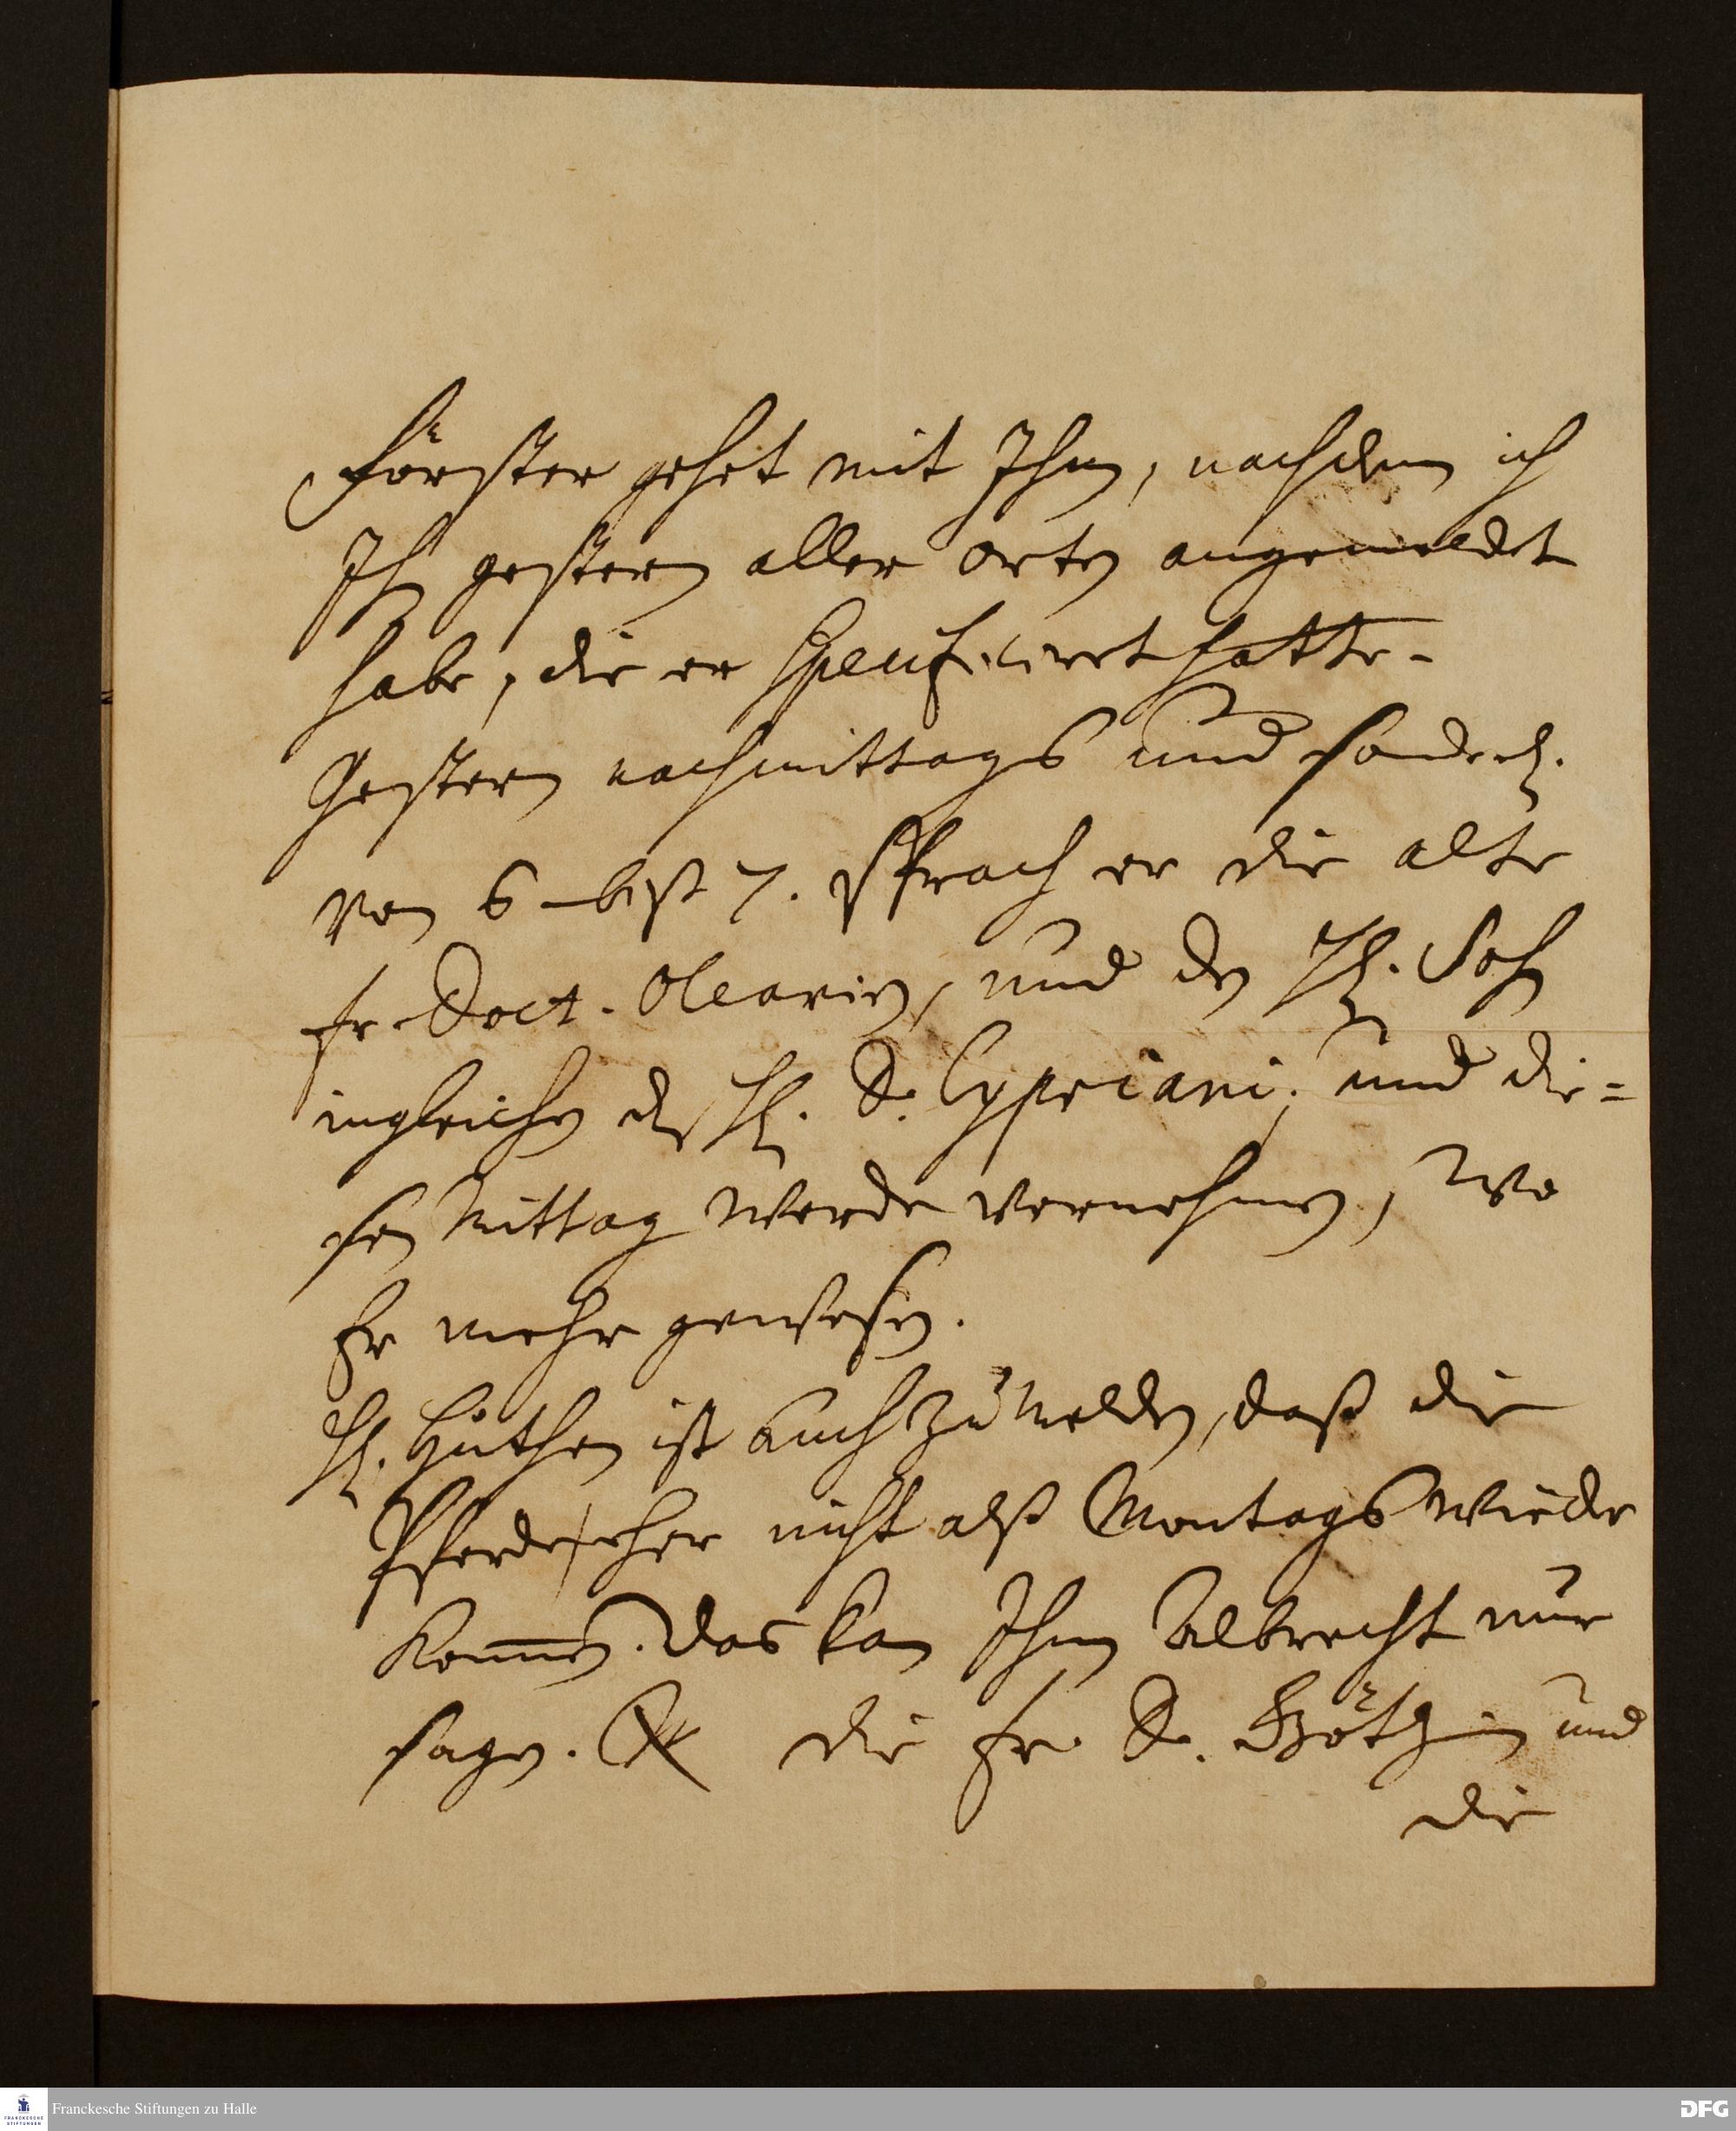 Förster gehet mit Ihm, nachdem ich
Ihn gestern aller Orten angemeldet
habe, die er Specificiret hatte.
Gestern nachmittags und
von 6 biß 7. sprach er die alte
fr. Doct. Olearin, und den H. Sohn
ingleichen den H. D. Cypriani, und die=
sen Mittag werde vernehmen, wo
Er mehr gewesen.
H. Huthen ist auch zu melden, daß die
Pferde eher nicht alß Montags wieder
kommen. das kan Ihm Albrecht nur
sagen. die Fr. D. Götzin und
die
Franckesche Stiftungen zu Halle
DFG